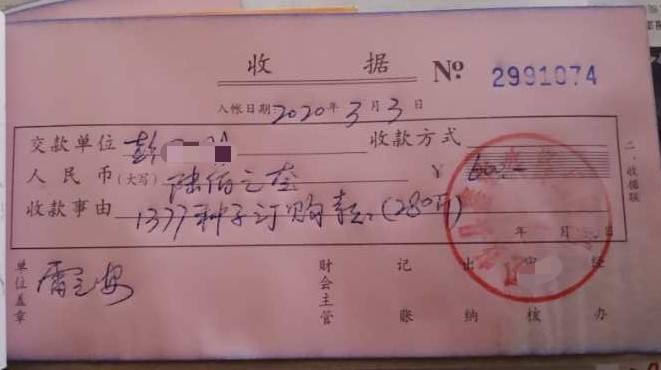 收据 Nº 2991074
入帐日期:2020年3月3日
交款单位 彭 收款方式
人民币(大写) 陆佰元整 ¥ 600.-
收款事由 1377种子订购款(280斤)
年 月 日
二、收据联
单位盖章 财会主管 记账 出纳 审核 经办